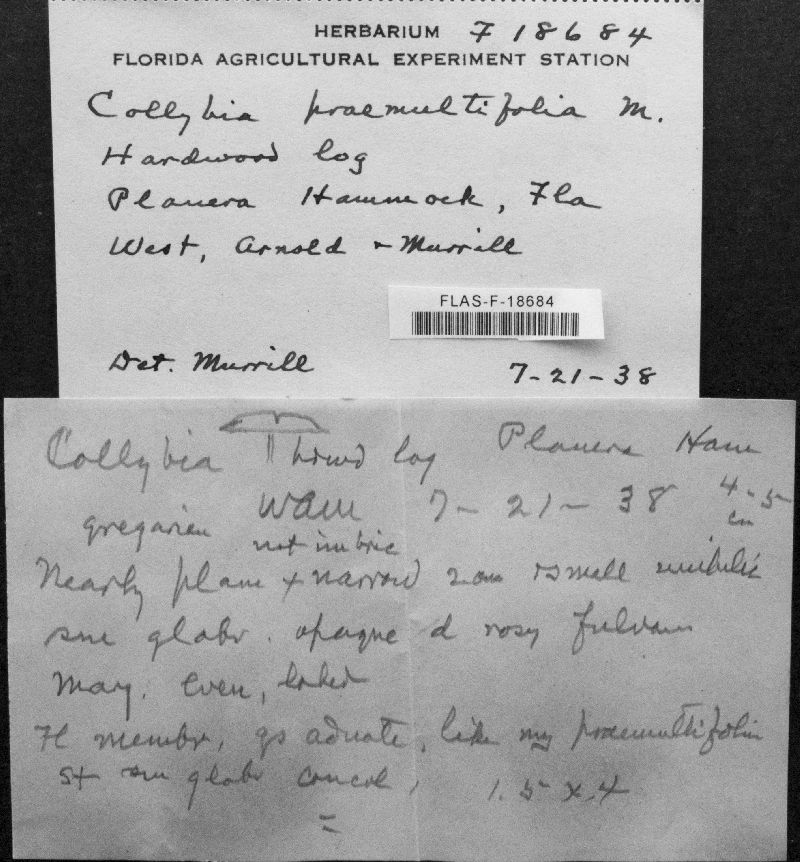 HERBARIUM F 18684
FLORIDA AGRICULTURAL EXPERIMENT STATION
Collybia praemultifolia M.
Hardwood log
Planera Hammock, Fla
West, Arnold & Murrill
FLAS-F-18684
Det. Murrill 7-21-38
Collybia log Planera Ham
WAM 7-21-38 4-5
cm
not imbric
Nearly plane + narrow small umbilic
sm glabr. opaque rosy fulvous
Marg. even, lobed
membr, adnate, like my praemultifolia
St sm glabr concol, 1.5 x .4